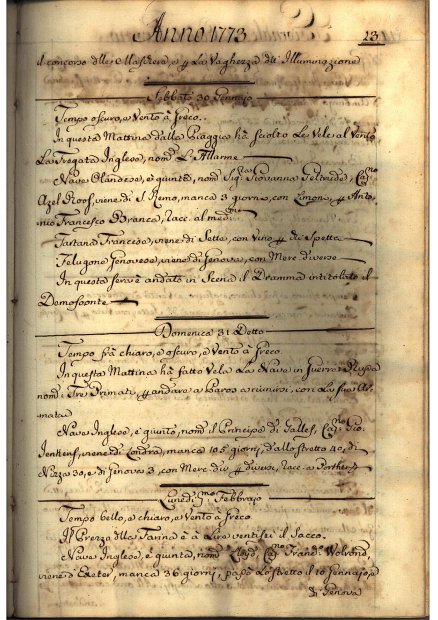 Anno 1773
23
il concorso delle Maschere, e per La Vaghezza della Illuminazione
Sabbato 30 Gennajo
Tempo oscuro, e Vento à Greco.
In questa Mattina dalla Piaggia hà sciolto Le Vele al Vento
La Fregata Inglese, nomta L'Allarme
Nave Olandese, è giunta, nomta Sigra Giovanna Geltruda, Capno
Azel Roof, viene di S. Remo, manca 3 giorni, con Limoni, per Anto-
nio Francesco Branca, racc. al medmo
Tartana Francese, viene di Sette, con Vino per di Spetta
Felugone Genovese, viene di Genova, con Merc. diverse
In questa sera è andato in Scena il Dramma intitolato il
Demofoonte
Domenica 31 Detto
Tempo frà chiaro, e oscuro, e Vento à Greco.
In questa Mattina hà fatto Vela La Nave in Guerra Russa
nomta Tre Primati, per andare a Paros a riunirsi, con La sua Ar-
mata
Nave Inglese, è giunta, nomta il Principe di Galles, Capno Gio.
Jenkens, viene di Londra, manca 105 giorni, dallo stretto 40, di
Nizza 30, e di Genova 3, con Merc. div. per diversi, racc. a Porther
Lunedì Pmo Febbrajo
Tempo bello, e chiaro, e Vento à Greco
Il Prezza della Farina è à Lire ventisei il Sacco.
Nave Inglese, è giunta, nomta Lloyd, Capno Frands Wolrond,
viene d'Exeter, manca 36 giorni, passò Lo stretto il 10 Gennajo, e
di Genova